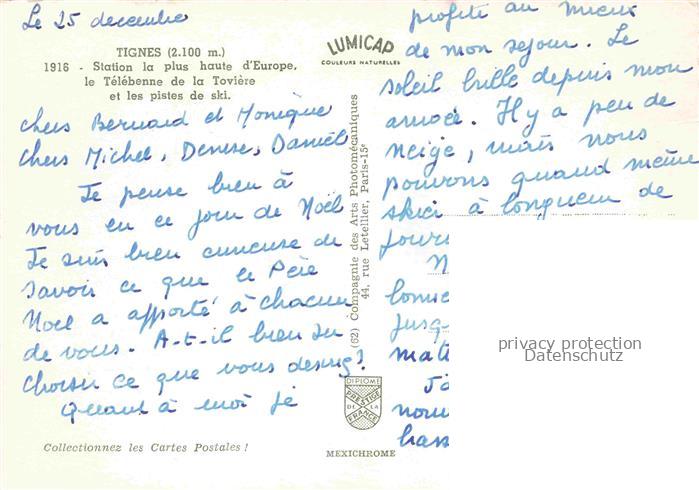 Le 25 decembre
TIGNES (2.100 m.)
1916 - Station la plus haute d'Europe,
le Télébenne de la Tovière
et les pistes de ski.
Chers Bernard et Monique
Chers Michel, Denise, Daniel
Je pense bien à
vous en ce jour de Noël
Je suis bien curieuse de
savoir ce que le Père
Noël a apporté à chacun
de vous. A-t-il bien su
choisir ce que vous désirez?
Quant à moi je
Collectionnez les Cartes Postales !
LUMICAP
COULEURS NATURELLES
(62) Compagnie des Arts Photomécaniques
44, rue Letellier, Paris-15e
DIPLOME
PRESTIGE
DE LA
FRANCE
MEXICHROME
profite au mieux
de mon sejour. Le
soleil brille depuis mon
arrivée. Il y a peu de
neige, mais nous
pouvons quand même
skier à longueur de
jour
N
Jusq
mat
J'a
nou
privacy protection
Datenschutz